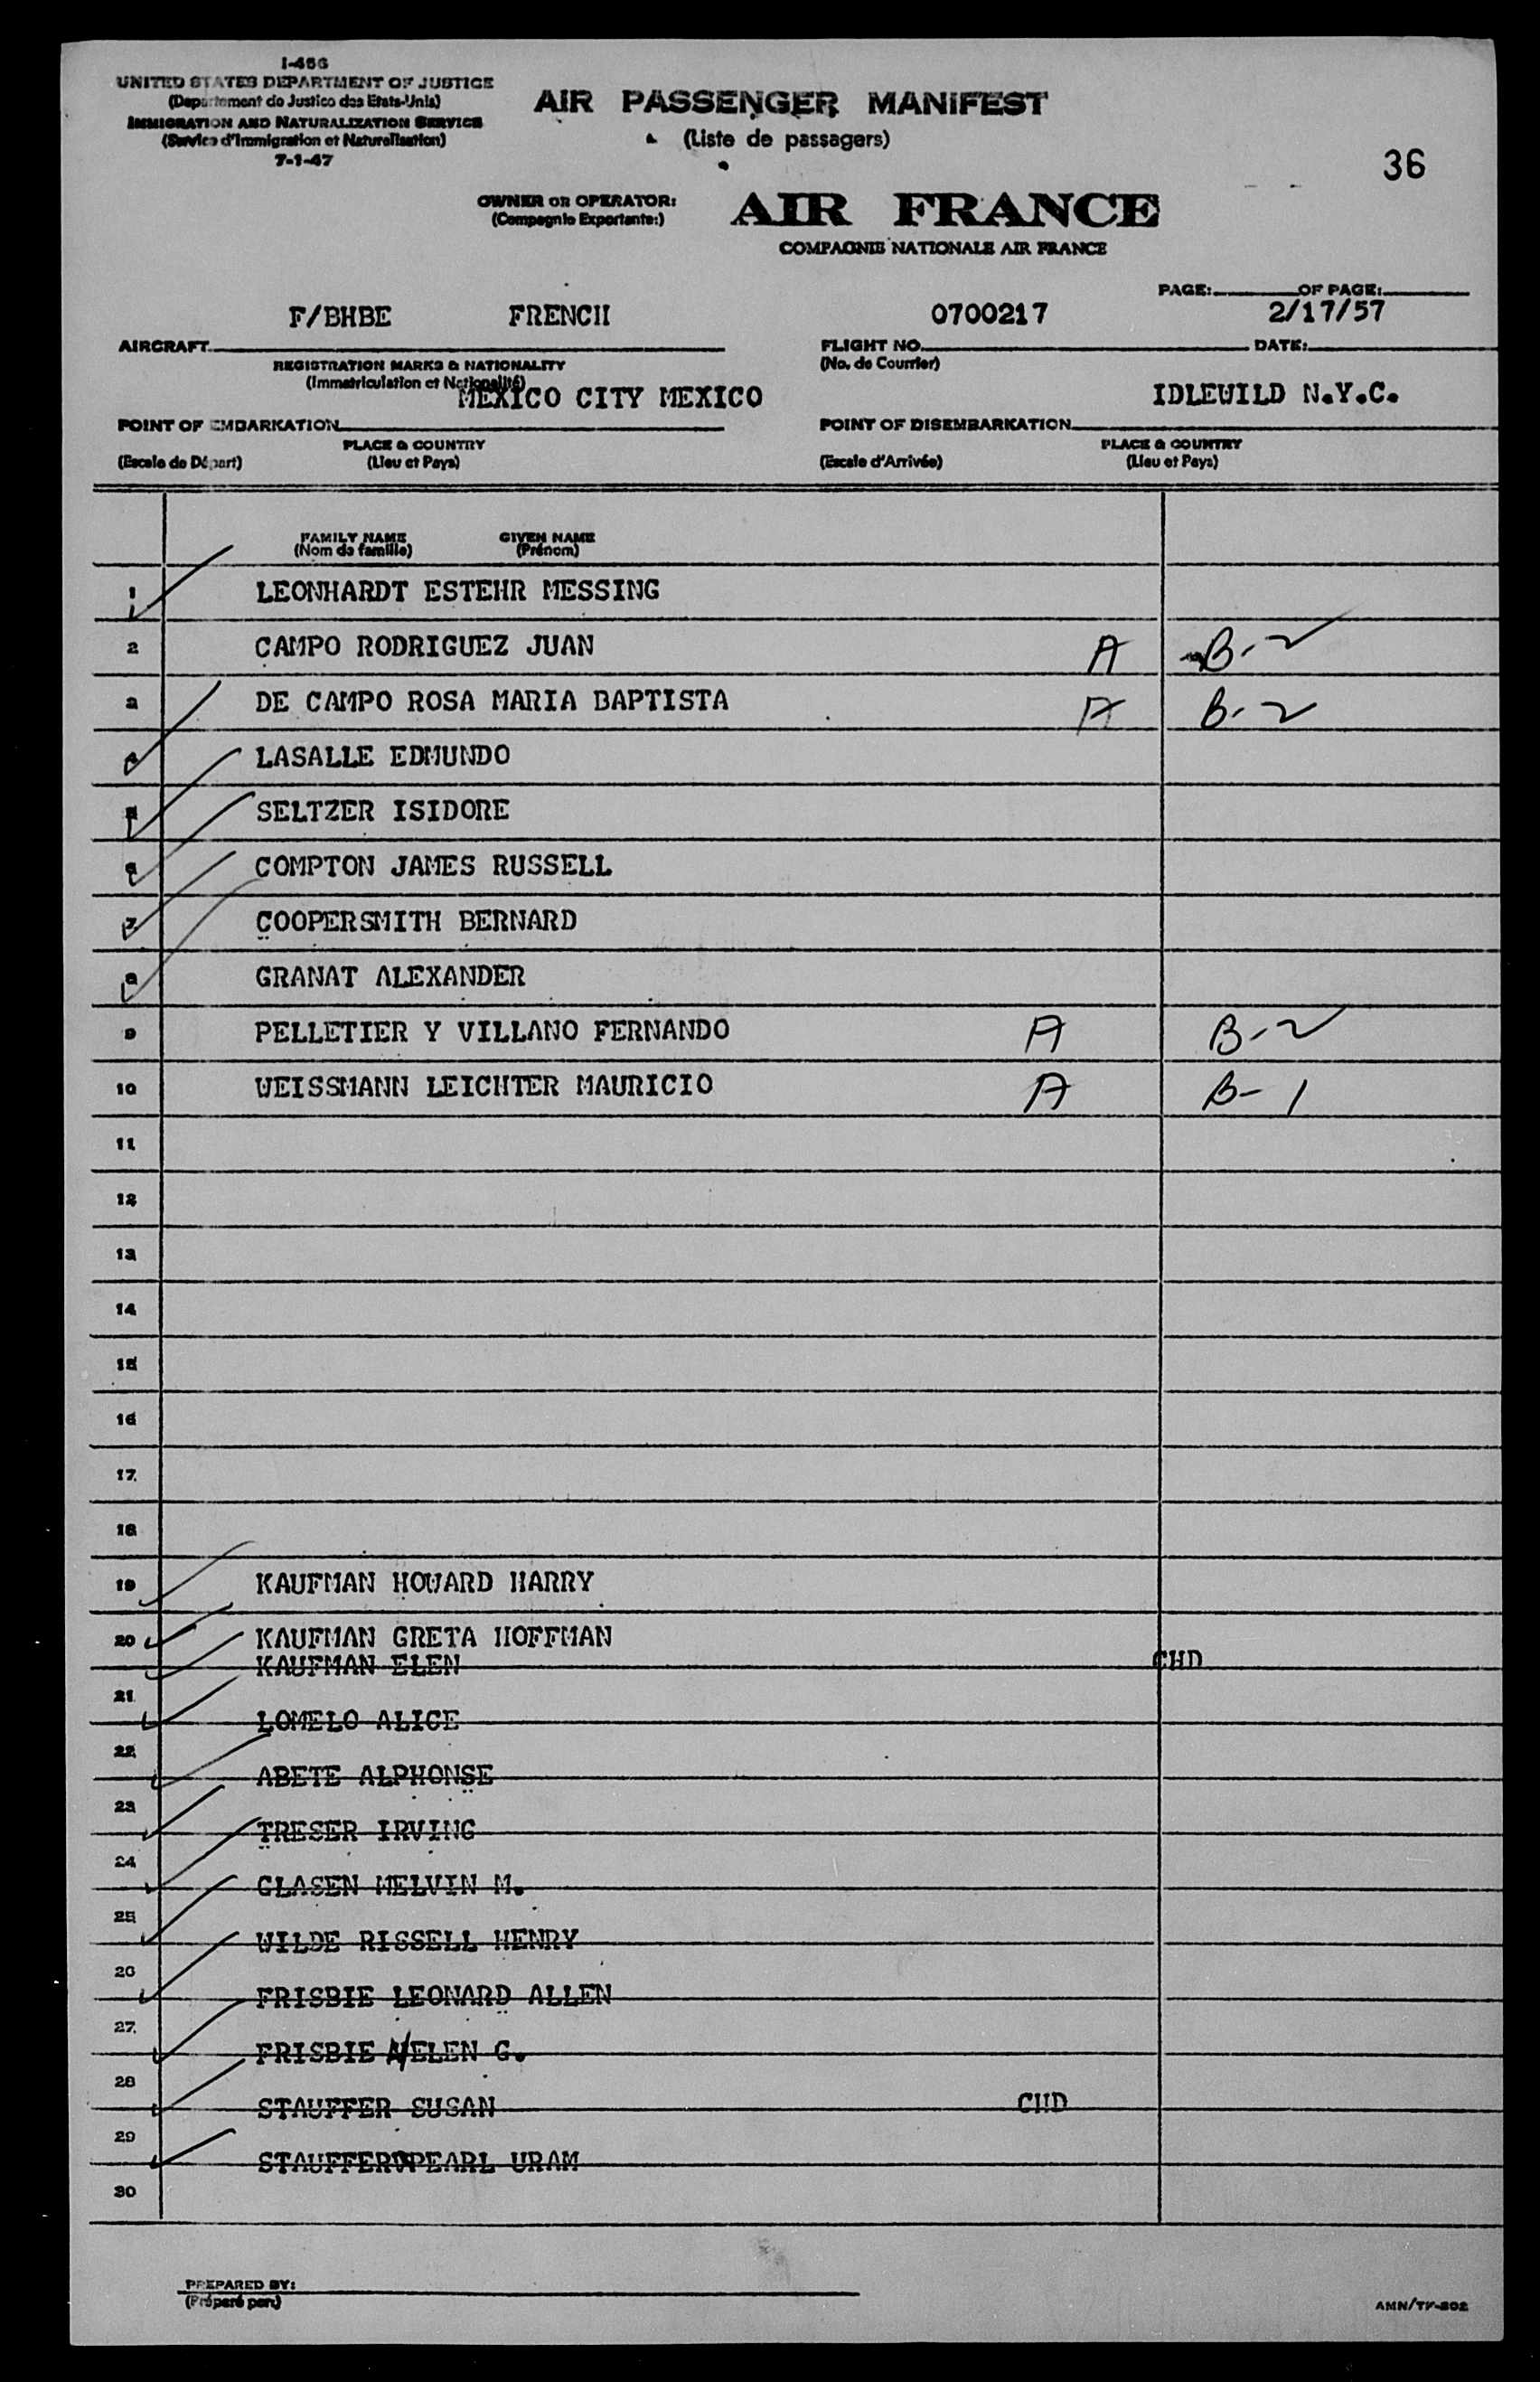 I-466
UNITED STATES DEPARTMENT OF JUSTICE
(Departement de Justice des Etats-Unis)
IMMIGRATION AND NATURALIZATION SERVICE
(Service d'Immigration et Naturalisation)
7-1-47
AIR PASSENGER MANIFEST
(Liste de passagers)
36
OWNER OR OPERATOR: AIR FRANCE
(Compagnie Exportante:)
COMPAGNIE NATIONALE AIR FRANCE
PAGE: OF PAGE:
F/BHBE FRENCH 0700217 2/17/57
AIRCRAFT FLIGHT NO. DATE:
REGISTRATION MARKS & NATIONALITY (No. de Courrier)
(Immatriculation et Nationalité)
MEXICO CITY MEXICO IDLEWILD N.Y.C.
POINT OF EMBARKATION POINT OF DISEMBARKATION
PLACE & COUNTRY PLACE & COUNTRY
(Escale de Départ) (Lieu et Pays) (Escale d'Arrivée) (Lieu et Pays)
FAMILY NAME GIVEN NAME
(Nom de famille) (Prénom)
1 LEONHARDT ESTEHR MESSING
2 CAMPO RODRIGUEZ JUAN A B-2
3 DE CAMPO ROSA MARIA BAPTISTA A B-2
4 LASALLE EDMUNDO
5 SELTZER ISIDORE
6 COMPTON JAMES RUSSELL
7 COOPERSMITH BERNARD
8 GRANAT ALEXANDER
9 PELLETIER Y VILLANO FERNANDO A B-2
10 WEISSMANN LEICHTER MAURICIO A B-1
11
12
13
14
15
16
17
18
19 KAUFMAN HOWARD HARRY
20 KAUFMAN GRETA HOFFMAN
KAUFMAN ELEN CHD
21
LOMELO ALICE
22
ABETE ALPHONSE
23
TRESER IRVING
24
GLASEN MELVIN M.
25
WILDE RISSELL HENRY
26
FRISBIE LEONARD ALLEN
27
FRISBIE HELEN G.
28
STAUFFER SUSAN CHD
29
STAUFFER PEARL URAM
30
PREPARED BY:
(Préparé par:)
AMN/TF-802